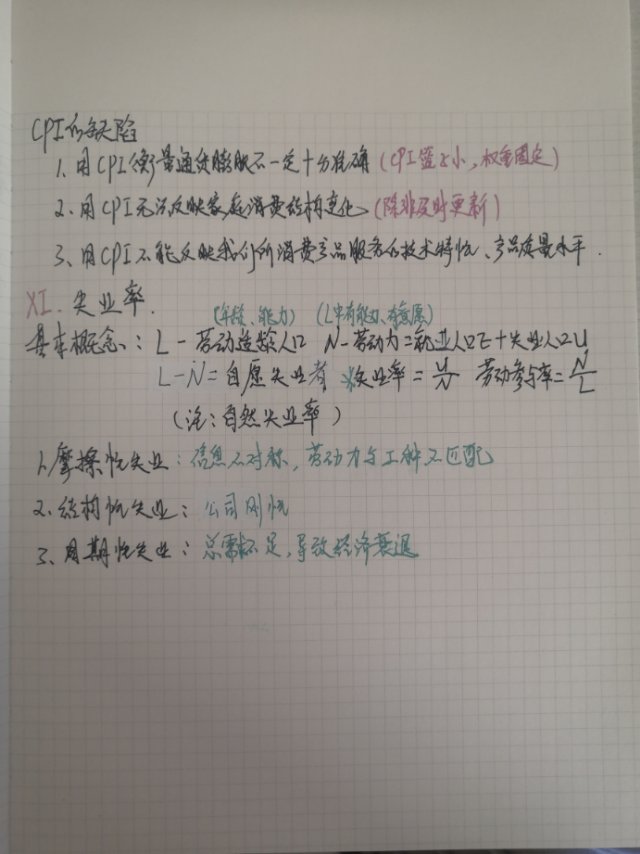 CPI的缺陷
1. 用CPI衡量通货膨胀不一定十分准确 (CPI篮太小, 权重固定)
2. 用CPI无法反映家庭消费结构变化 (除非及时更新)
3、用CPI不能反映我们所消费产品服务的技术特性、产品质量水平.
XI. 失业率.
(年龄、能力) (L中有能力、有意愿)
基本概念: L - 劳动适龄人口 N - 劳动力 = 就业人口E + 失业人口U
L-N = 自愿失业者 失业率 = U/N 劳动参与率 = N/L
(注: 自然失业率)
1. 摩擦性失业: 信息不对称, 劳动力与工种不匹配
2. 结构性失业: 公司刚性
3、周期性失业: 总需求不足, 导致经济衰退